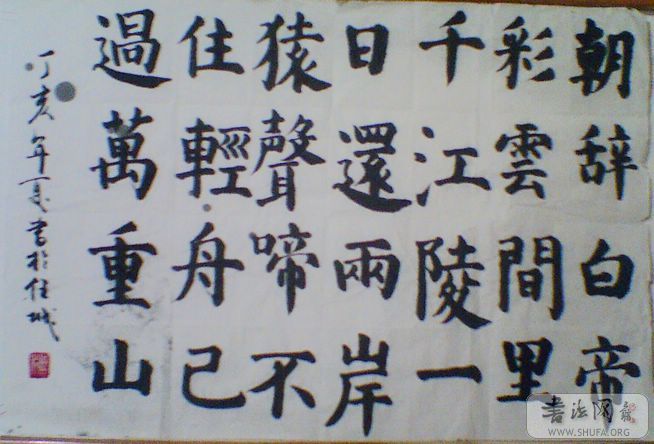 朝辞白帝
彩雲間里
千江陵一
日還兩岸
猿聲啼不
住輕舟已
過萬重山
丁亥年夏書於任城
書法网
WWW.SHUFA.ORG